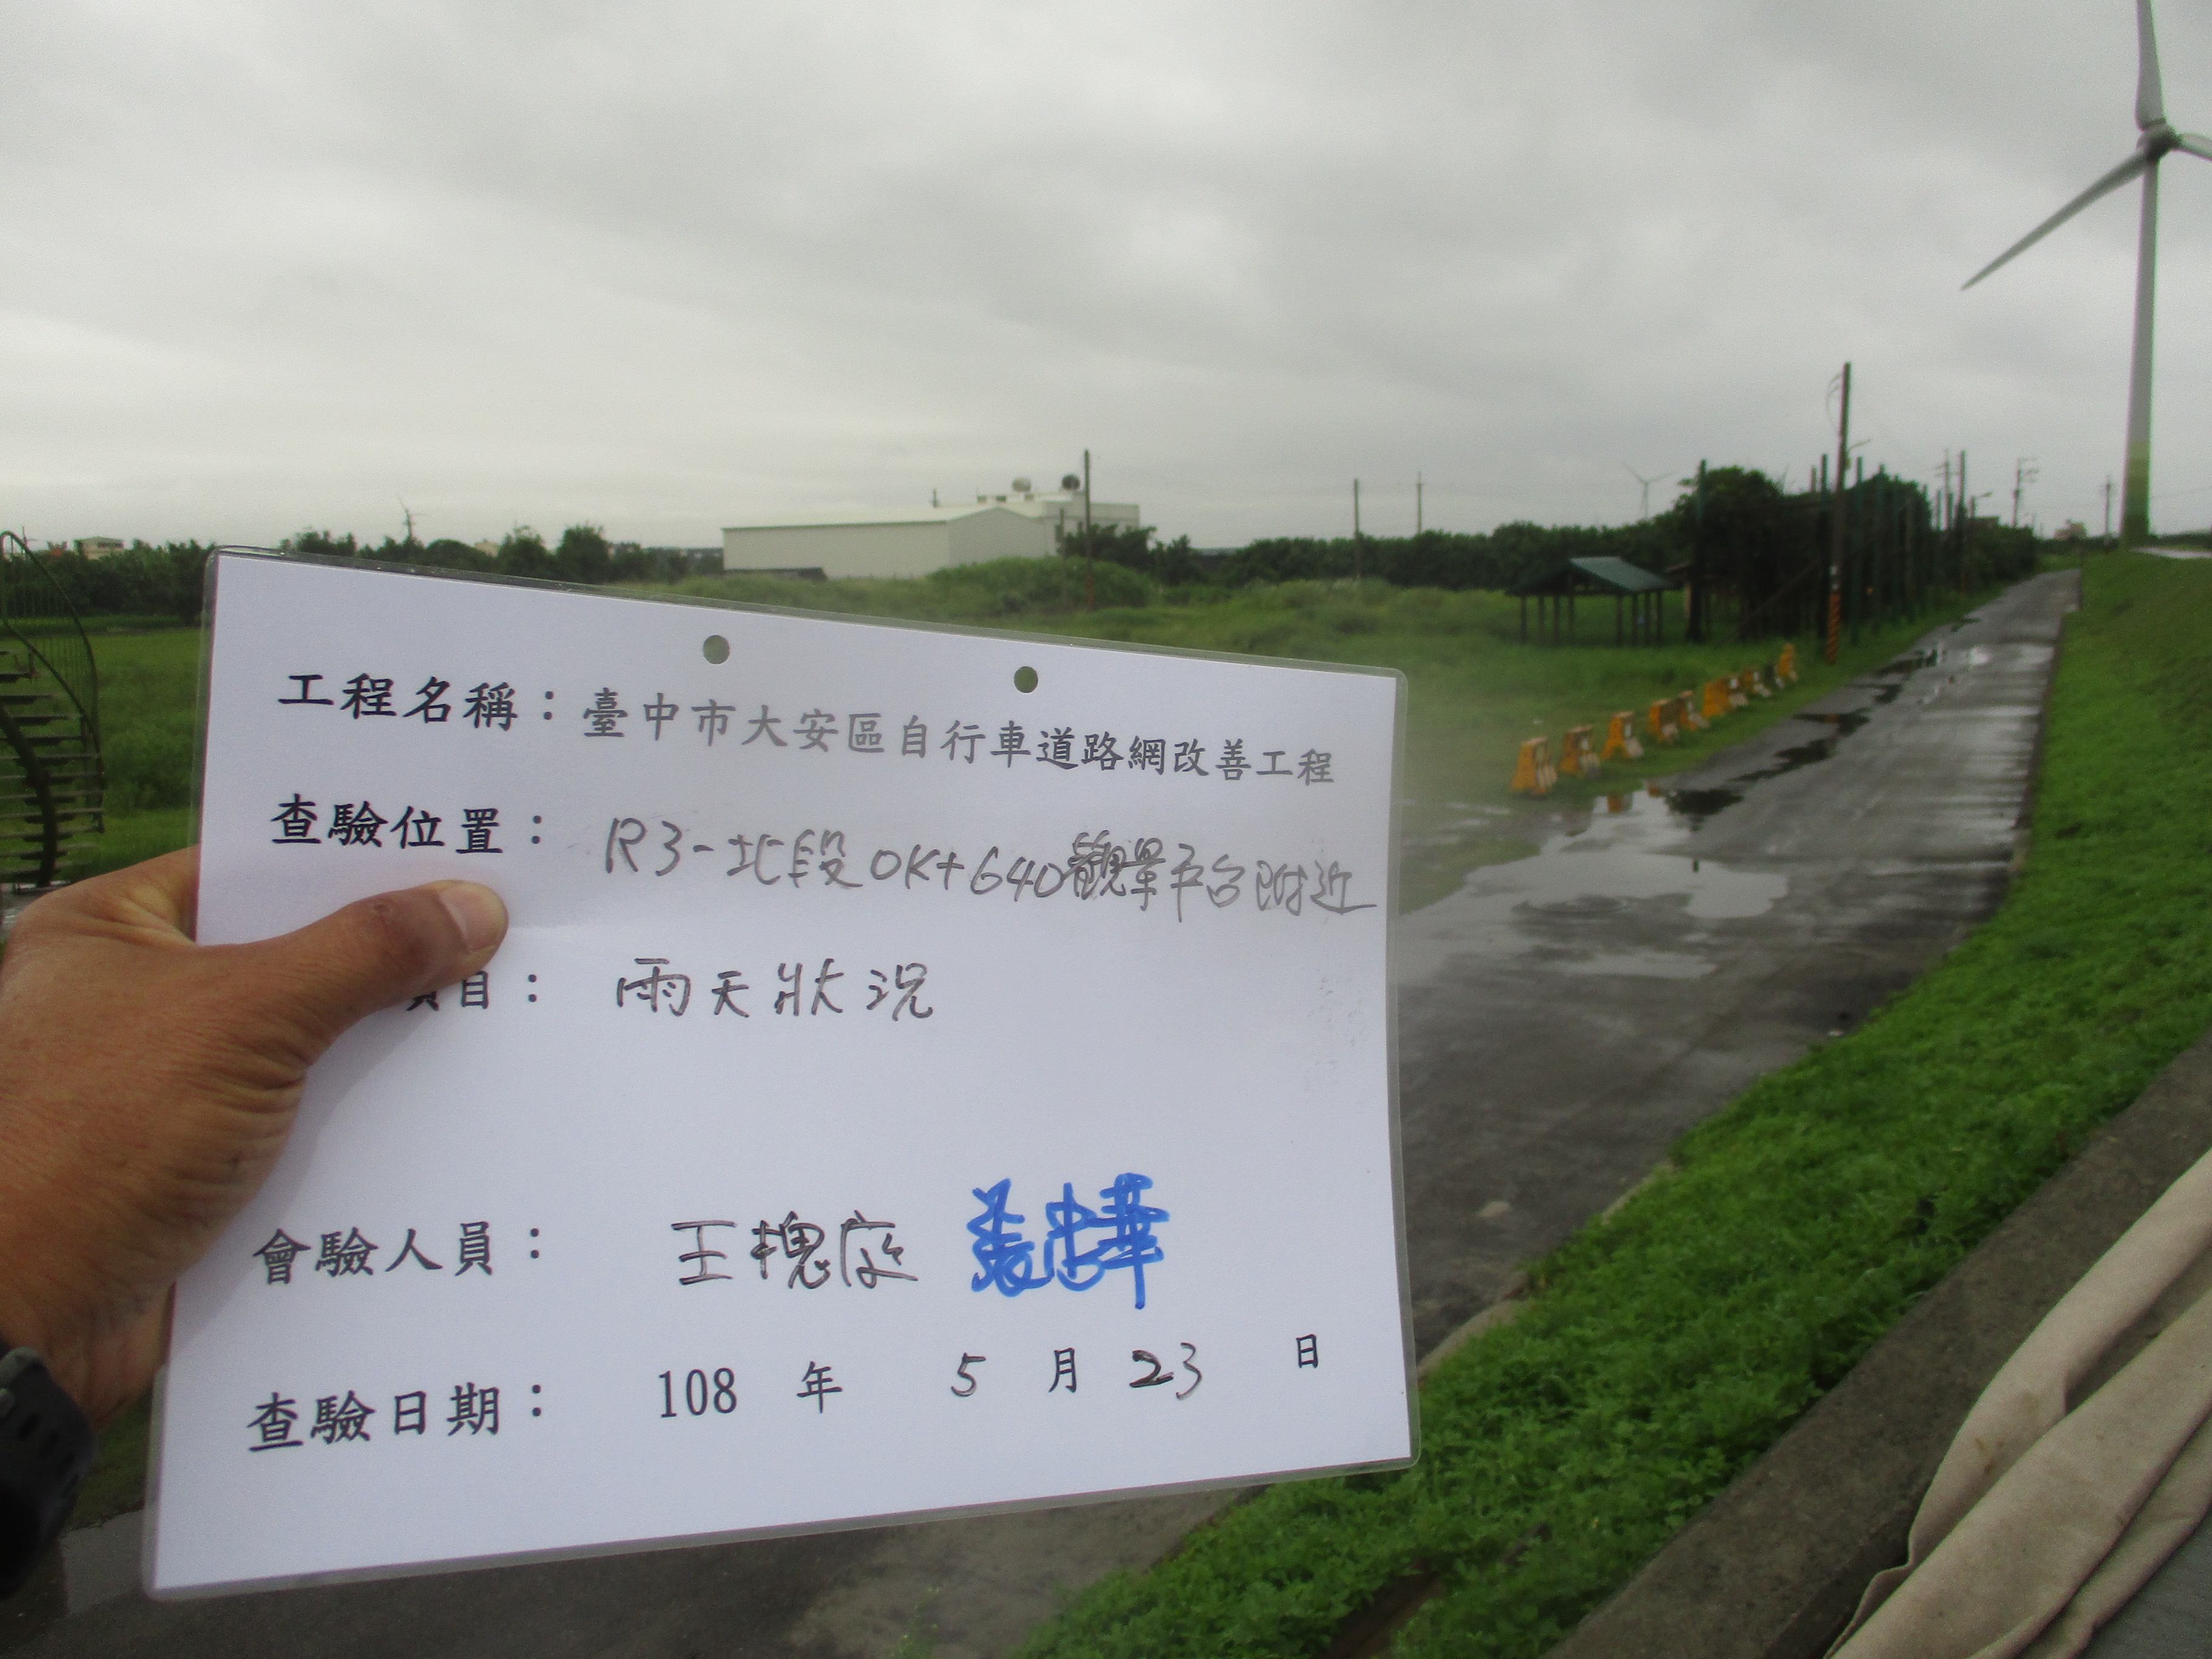 工程名稱：臺中市大安區自行車道路網改善工程
查驗位置：R3-北段0K+640觀景平台附近
項目：雨天狀況
會驗人員：王槐庭
查驗日期：108年5月23日